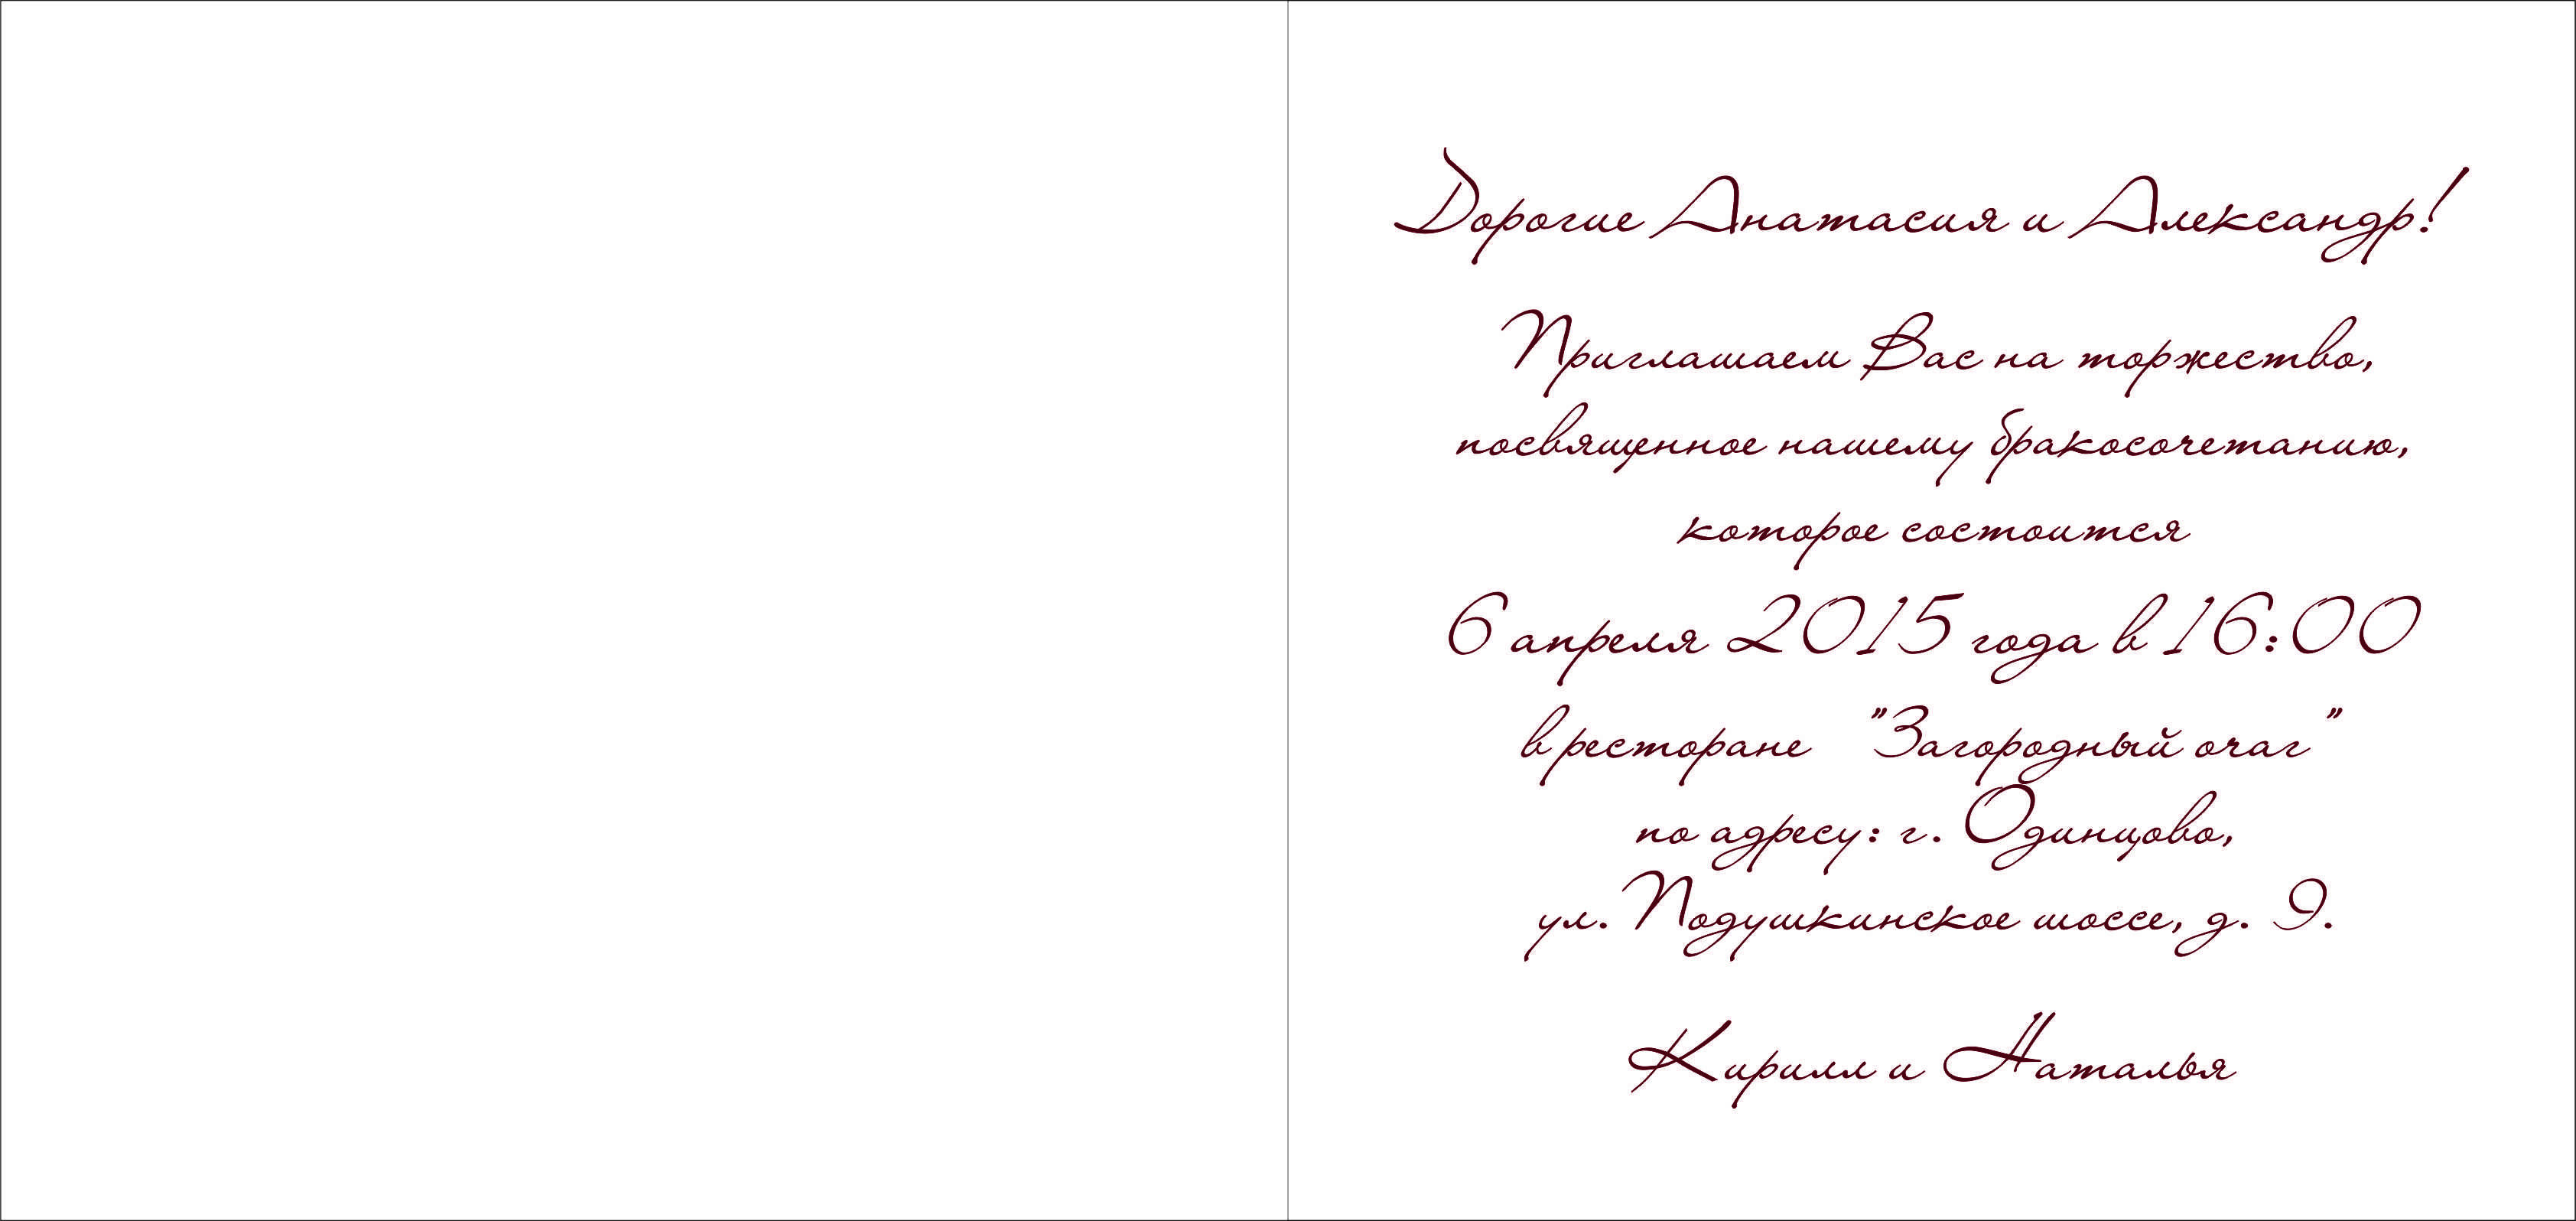 Дорогие Анатасия и Александр!
Приглашаем Вас на торжество,
посвященное нашему бракосочетанию,
которое состоится
6 апреля 2015 года в 16:00
в ресторане "Загородный очаг"
по адресу: г. Одинцово,
ул. Подушкинское шоссе, д. 9.
Кирилл и Наталья